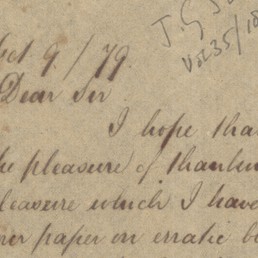 J. G. S
Vol 35/18
Oct 9/79.
Dear Sir
I hope tha
he pleasure of thankin
leasure which I have
er paper on erratic bo